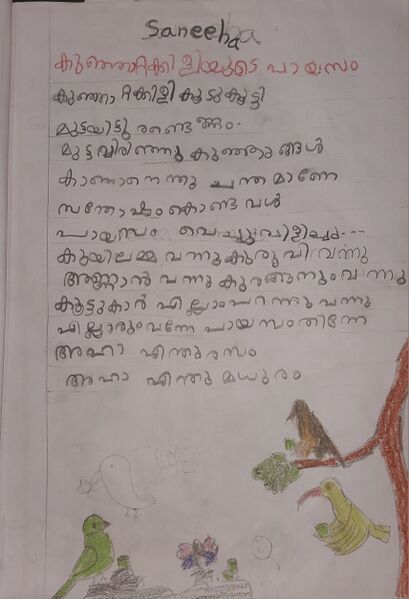 Saneeha
കുഞ്ഞാറ്റക്കിളിയുടെ പായസം
കുഞ്ഞാറ്റക്കിളി കൂടുകൂട്ടി
മുട്ടയിട്ടു രണ്ടെണ്ണം.
മുട്ട വിരിഞ്ഞു കുഞ്ഞുങ്ങൾ
കാണാനെന്തു ചന്തമാണേ
സന്തോഷം കൊണ്ടവൾ
പായസം വെച്ചു വിളിച്ചു---
കുയിലമ്മ വന്നു കുരുവി വന്നു
അണ്ണാൻ വന്നു കുരങ്ങനും വന്നു
കൂട്ടുകാർ എല്ലാം പറന്നു വന്നു
എല്ലാരും വന്നേ പായസം തിന്നേ
അഹാ എന്തു രസം
അഹാ എന്തു മധുരം